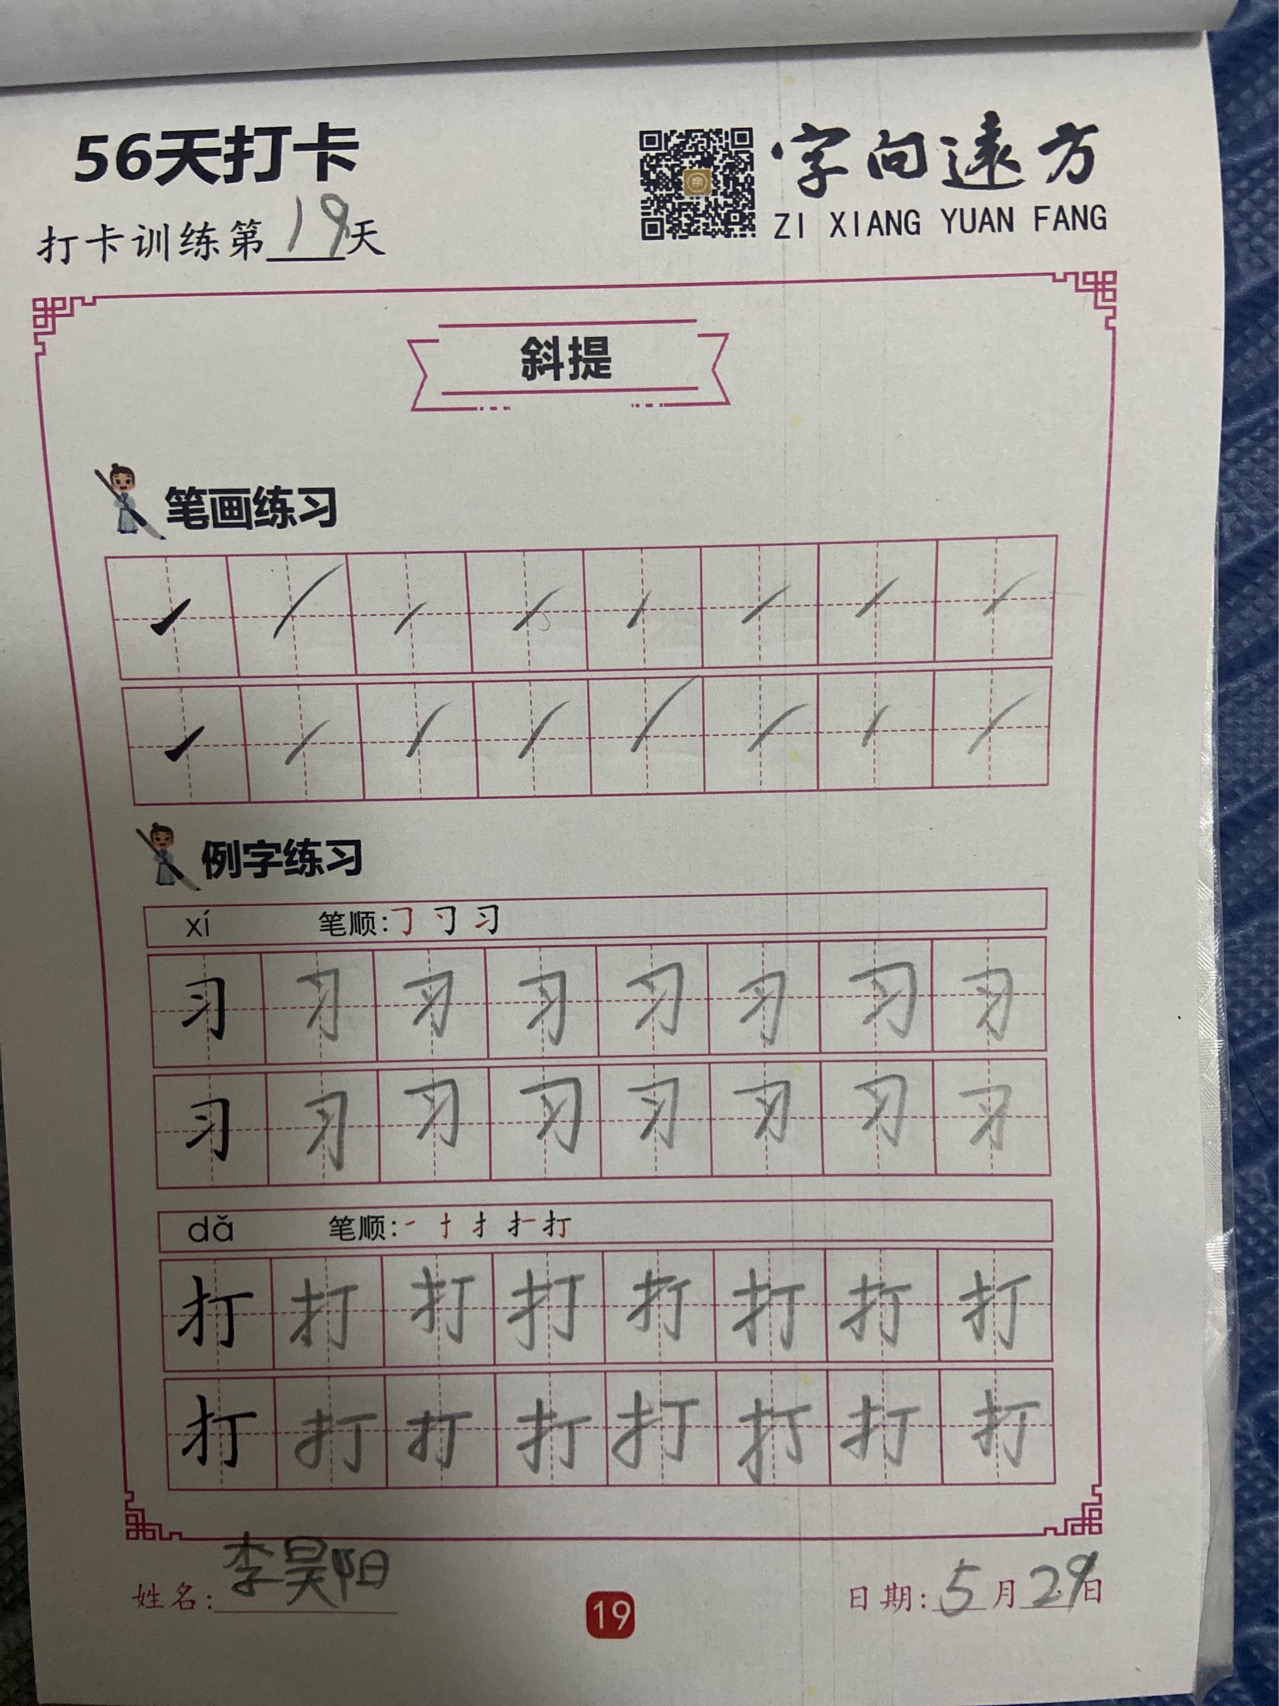 56天打卡
字向远方
ZI XIANG YUAN FANG
打卡训练第19天
斜提
笔画练习
例字练习
xí 笔顺:㇆ 习
习 习 习 习 习 习 习 习
习 习 习 习 习 习 习 习
dǎ 笔顺:一 十 扌 打
打 打 打 打 打 打 打 打
打 打 打 打 打 打 打 打
姓名:李昊阳
19
日期:5月29日